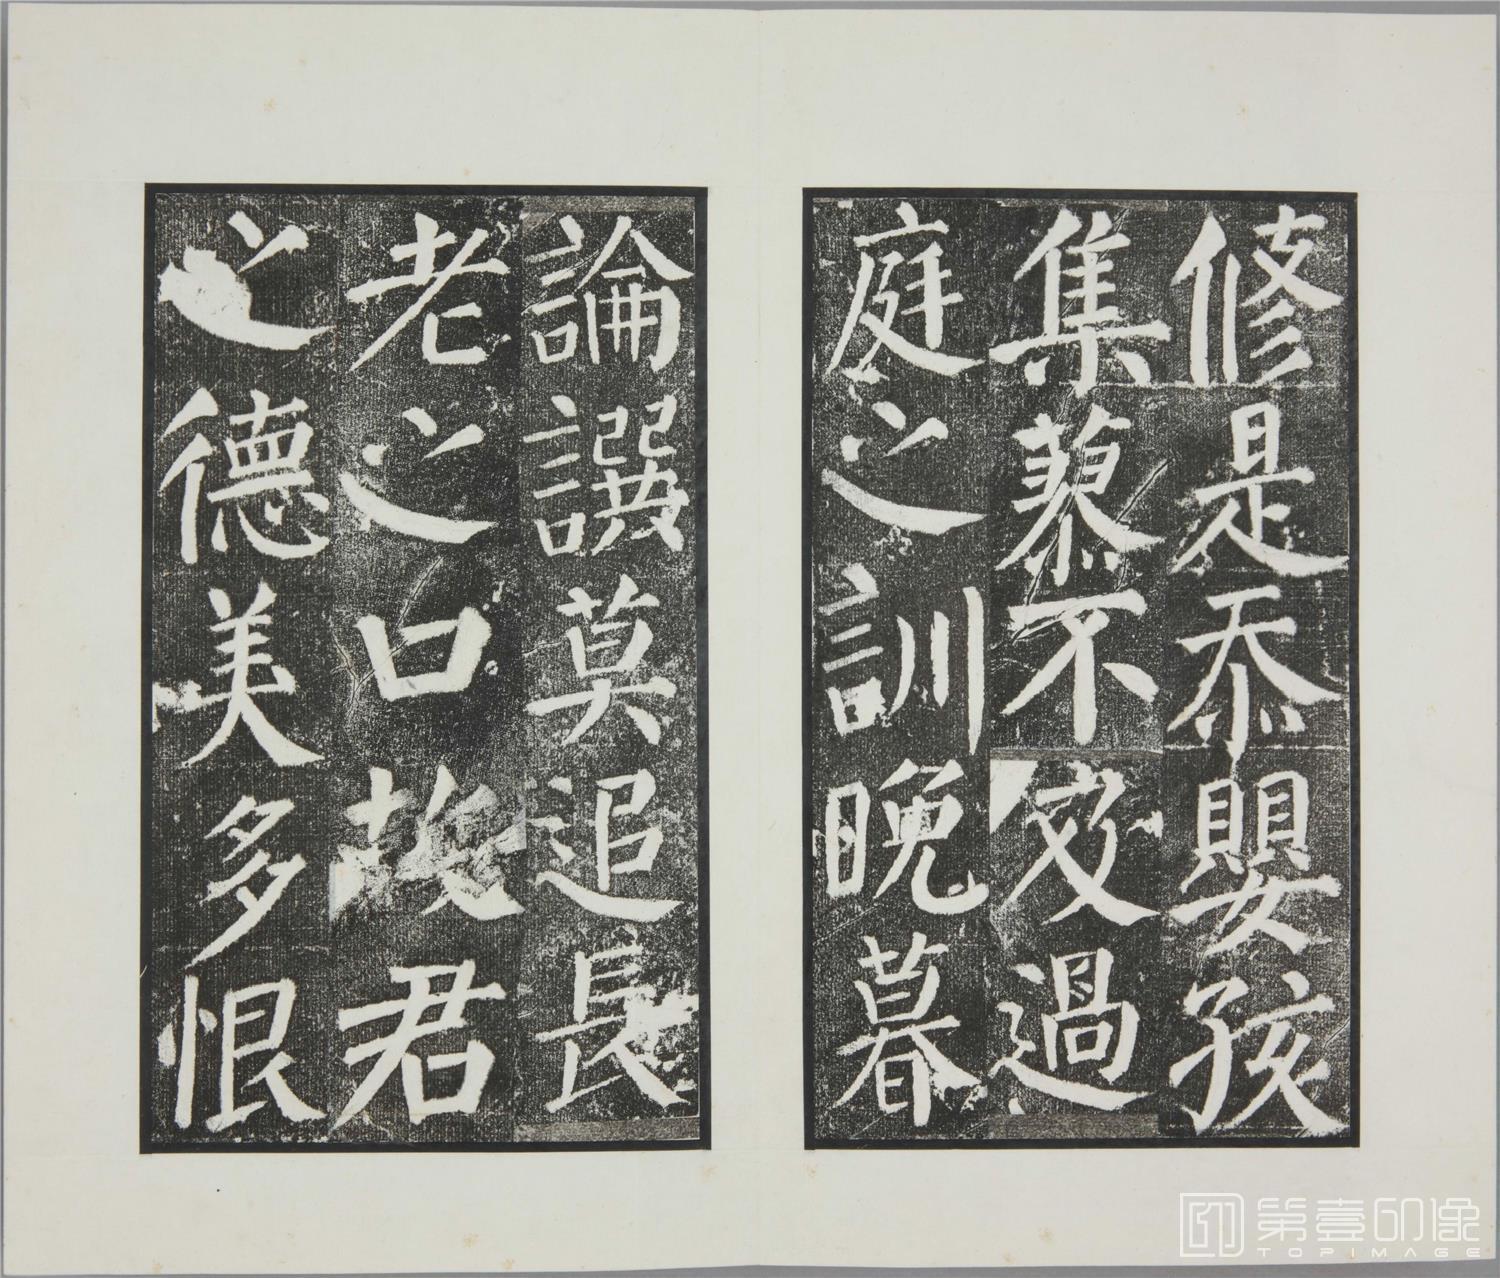 修是忝嬰孩
集蓼不及過
庭之訓晚暮
論譔莫追長
老之口故君
之德美多恨
第壹印像
TOPIMAGE